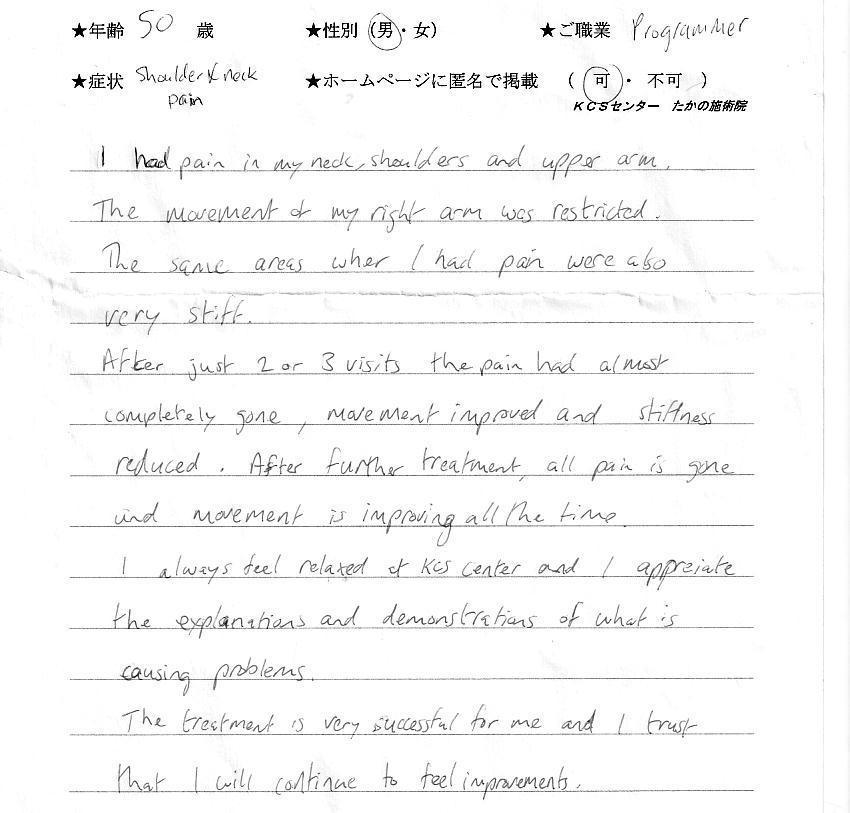 ★年齢 50 歳 ★性別 (男・女) ★ご職業 Programmer
★症状 Shoulder & neck pain ★ホームページに匿名で掲載 ( 可 ・ 不可 )
KCSセンター たかの施術院
I had pain in my neck, shoulders and upper arm.
The movement of my right arm was restricted.
The same areas wher I had pain were also
very stiff.
After just 2 or 3 visits the pain had almost
completely gone, movement improved and stiffness
reduced. After further treatment, all pain is gone
and movement is improving all the time.
I always feel relaxed at KCS center and I appreiate
the explanations and demonstrations of what is
causing problems.
The treatment is very successful for me and I trust
that I will continue to feel improvements.